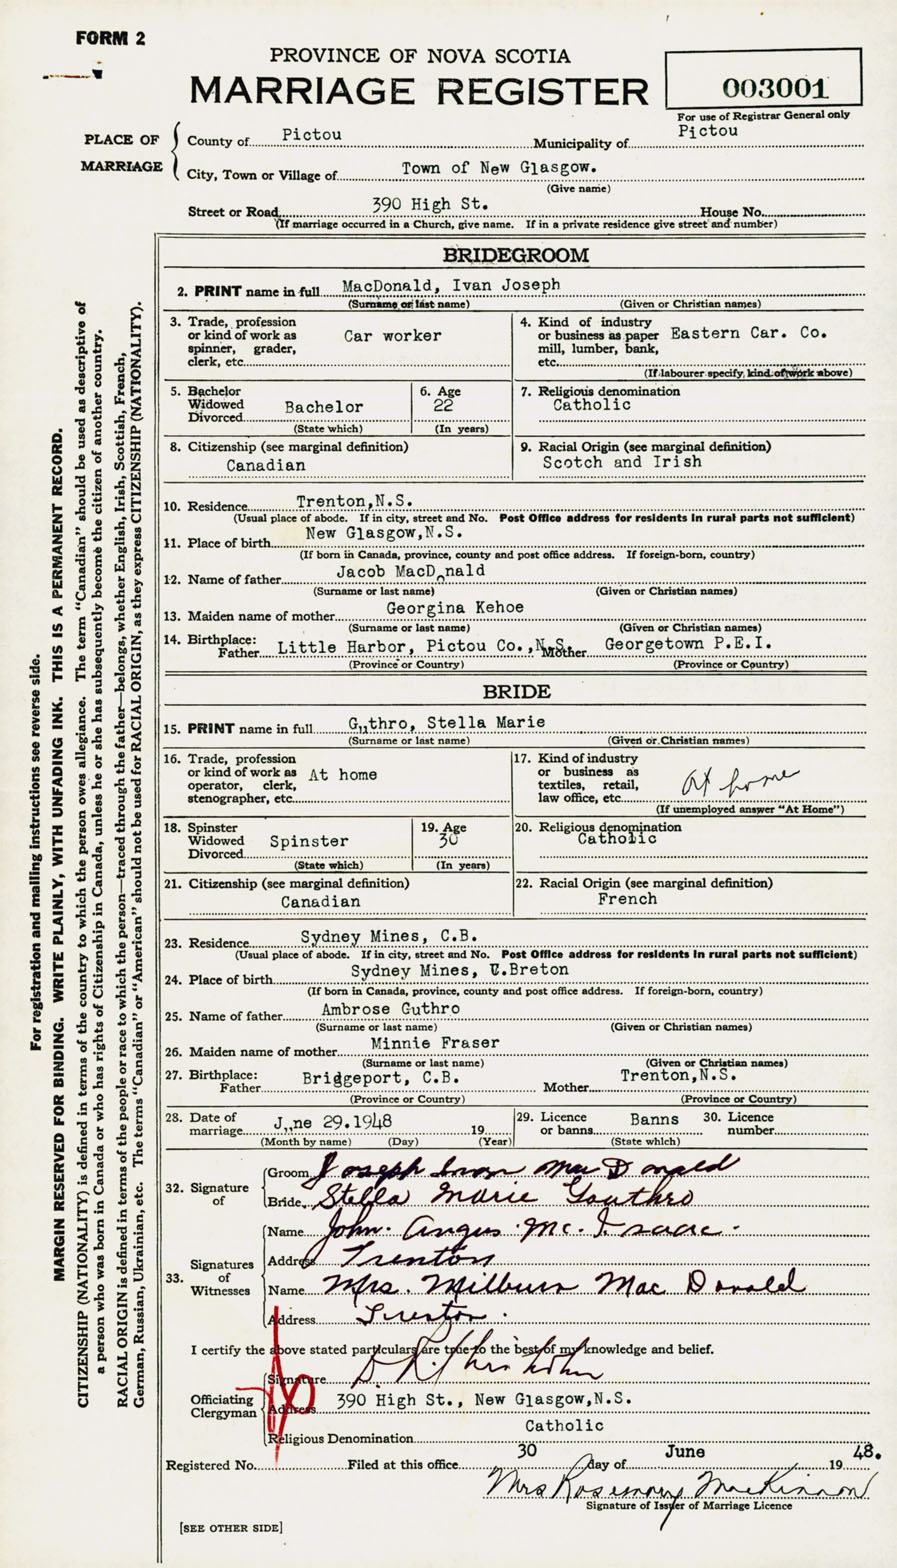 FORM 2
PROVINCE OF NOVA SCOTIA
MARRIAGE REGISTER
003001
For use of Registrar General only
PLACE OF MARRIAGE
County of Pictou Municipality of Pictou
City, Town or Village of Town of New Glasgow.
(Give name)
Street or Road 390 High St. House No.
(If marriage occurred in a Church, give name. If in a private residence give street and number)
BRIDEGROOM
2. PRINT name in full MacDonald, Ivan Joseph
(Surname or last name) (Given or Christian names)
3. Trade, profession or kind of work as spinner, grader, clerk, etc. Car worker
4. Kind of industry or business as paper mill, lumber, bank, etc. Eastern Car. Co.
(If labourer specify kind of work above)
5. Bachelor Widowed Divorced Bachelor
(State which)
6. Age 22
(In years)
7. Religious denomination
Catholic
8. Citizenship (see marginal definition)
Canadian
9. Racial Origin (see marginal definition)
Scotch and Irish
10. Residence Trenton,N.S.
(Usual place of abode. If in city, street and No. Post Office address for residents in rural parts not sufficient)
11. Place of birth New Glasgow,N.S.
(If born in Canada, province, county and post office address. If foreign-born, country)
12. Name of father Jacob MacDonald
(Surname or last name) (Given or Christian names)
13. Maiden name of mother Georgina Kehoe
(Surname or last name) (Given or Christian names)
14. Birthplace: Father Little Harbor, Pictou Co.,N.S. Mother Georgetown P.E.I.
(Province or Country) (Province or Country)
BRIDE
15. PRINT name in full Guthro, Stella Marie
(Surname or last name) (Given or Christian names)
16. Trade, profession or kind of work as operator, clerk, stenographer, etc. At home
17. Kind of industry or business as textiles, retail, law office, etc. At home
(If unemployed answer "At Home")
18. Spinster Widowed Divorced Spinster
(State which)
19. Age 30
(In years)
20. Religious denomination
Catholic
21. Citizenship (see marginal definition)
Canadian
22. Racial Origin (see marginal definition)
French
23. Residence Sydney Mines, C.B.
(Usual place of abode. If in city, street and No. Post Office address for residents in rural parts not sufficient)
24. Place of birth Sydney Mines, C.Breton
(If born in Canada, province, county and post office address. If foreign-born, country)
25. Name of father Ambrose Guthro
(Surname or last name) (Given or Christian names)
26. Maiden name of mother Minnie Fraser
(Surname or last name) (Given or Christian names)
27. Birthplace: Father Bridgeport, C.B. Mother Trenton,N.S.
(Province or Country) (Province or Country)
28. Date of marriage June 29.1948 19
(Month by name) (Day) (Year)
29. Licence or banns Banns
(State which)
30. Licence number
32. Signature of
Groom Joseph Ivan MacDonald
Bride Stella Marie Gouthro
33. Signatures of Witnesses
Name John Angus Mc.Isaac.
Address Trenton
Name Mrs. Milburn MacDonald
Address Trenton.
I certify the above stated particulars are true to the best of my knowledge and belief.
Officiating Clergyman
Signature
Address 390 High St., New Glasgow,N.S.
Religious Denomination Catholic
Registered No. Filed at this office 30 day of June 19 48.
Mrs Rosemary MacKinnon
Signature of Issuer of Marriage Licence
[SEE OTHER SIDE]
For registration and mailing instructions see reverse side.
MARGIN RESERVED FOR BINDING. WRITE PLAINLY, WITH UNFADING INK. THIS IS A PERMANENT RECORD.
CITIZENSHIP (NATIONALITY) is defined in terms of the country to which the person owes allegiance. The term "Canadian" should be used as descriptive of
a person who was born in Canada or who has rights of Citizenship in Canada, unless he or she has subsequently become the citizen of another country.
RACIAL ORIGIN is defined in terms of the people or race to which the person—traced through the father—belongs, whether English, Irish, Scottish, French,
German, Russian, Ukrainian, etc. The terms "Canadian" or "American" should not be used for RACIAL ORIGIN, as they express CITIZENSHIP (NATIONALITY).